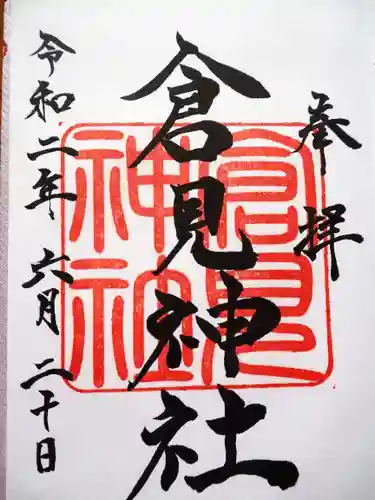 奉拝
倉見神社
倉見神社
令和二年 六月 二十日